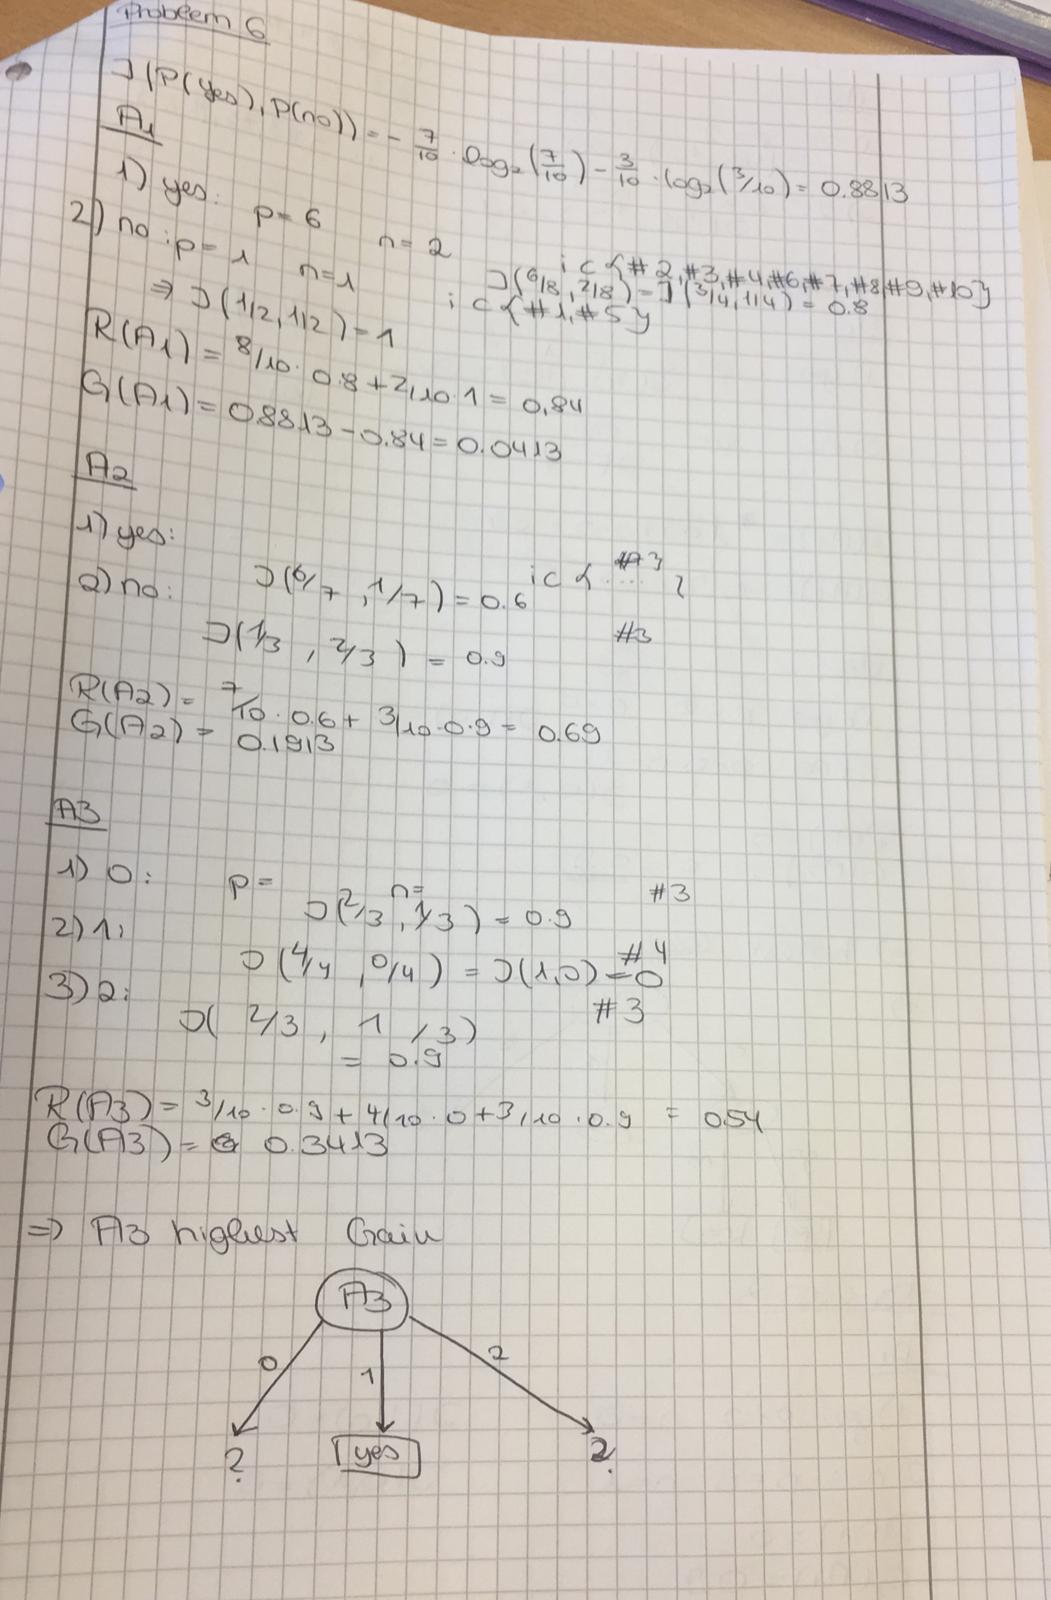 Problem 6
I(P(yes), P(no)) = - 7/10 · log₂(7/10) - 3/10 · log₂(3/10) = 0.8813
A1
1) yes: p= 6 n= 2 i ∈ {#2, #3, #4, #6, #7, #8, #9, #10}
I(6/8, 2/8) = I(3/4, 1/4) = 0.8
2) no: p= 1 n=1 i ∈ {#1, #5}
⇒ I(1/2, 1/2) = 1
R(A1) = 8/10 · 0.8 + 2/10 · 1 = 0,84
G(A1) = 0.8813 - 0.84 = 0.0413
A2
1) yes:
I(6/7, 1/7) = 0.6 i ∈ {
2) no:
I(1/3, 2/3) = 0.9 #3
R(A2) = 7/10 · 0.6 + 3/10 · 0.9 = 0.69
G(A2) = 0.1913
A3
1) 0: p= n= #3
I(2/3, 1/3) = 0.9
2) 1: #4
I(4/4, 0/4) = I(1,0) = 0
3) 2: #3
I( 2/3, 1/3)
= 0.9
R(A3) = 3/10 · 0.9 + 4/10 · 0 + 3/10 · 0.9 = 0.54
G(A3) = 0.3413
⇒ A3 highest Gain
A3
0 1 2
? yes ?